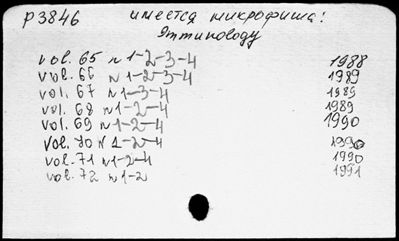 р3846 имеется микрофиша:
Immunology
vol. 65 n 1-2-3-4 1988
vol. 66 n 1-2-3-4 1989
vol. 67 n 1-3-4 1989
vol. 68 n 1-2-4 1989
vol. 69 n 1-2-4 1990
vol. 70 n 1-2-4 1990
vol. 71 n 1-2-4 1990
vol. 72 n 1-2 1991